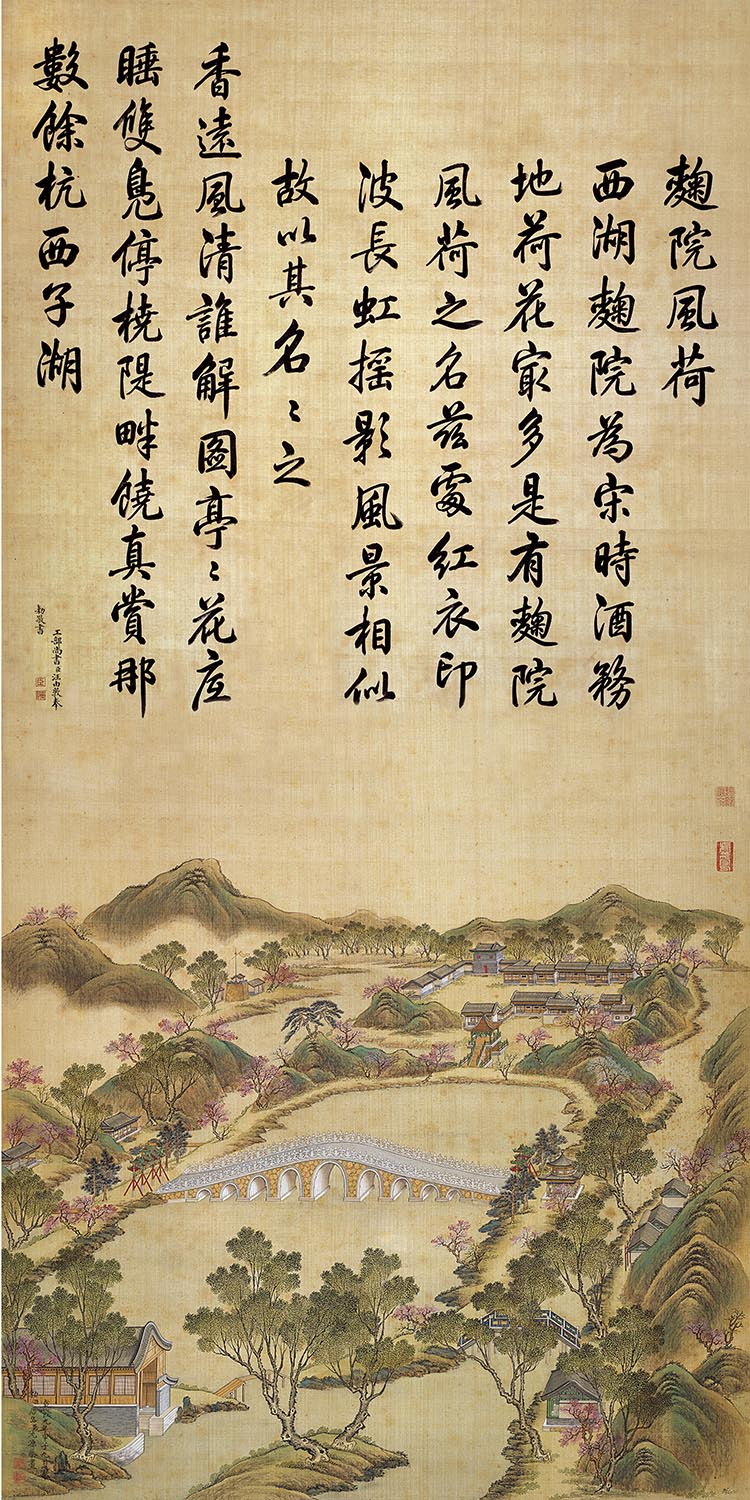 麴院風荷
西湖麴院為宋時酒務
地荷花冣多是有麴院
風荷之名兹處紅衣印
波長虹揺影風景相似
故以其名〻之
香遠風清誰解圖亭〻花底
睡雙鳬停橈隄畔饒真賞那
數餘杭西子湖
工部尚書臣汪由敦奉
勅敬書